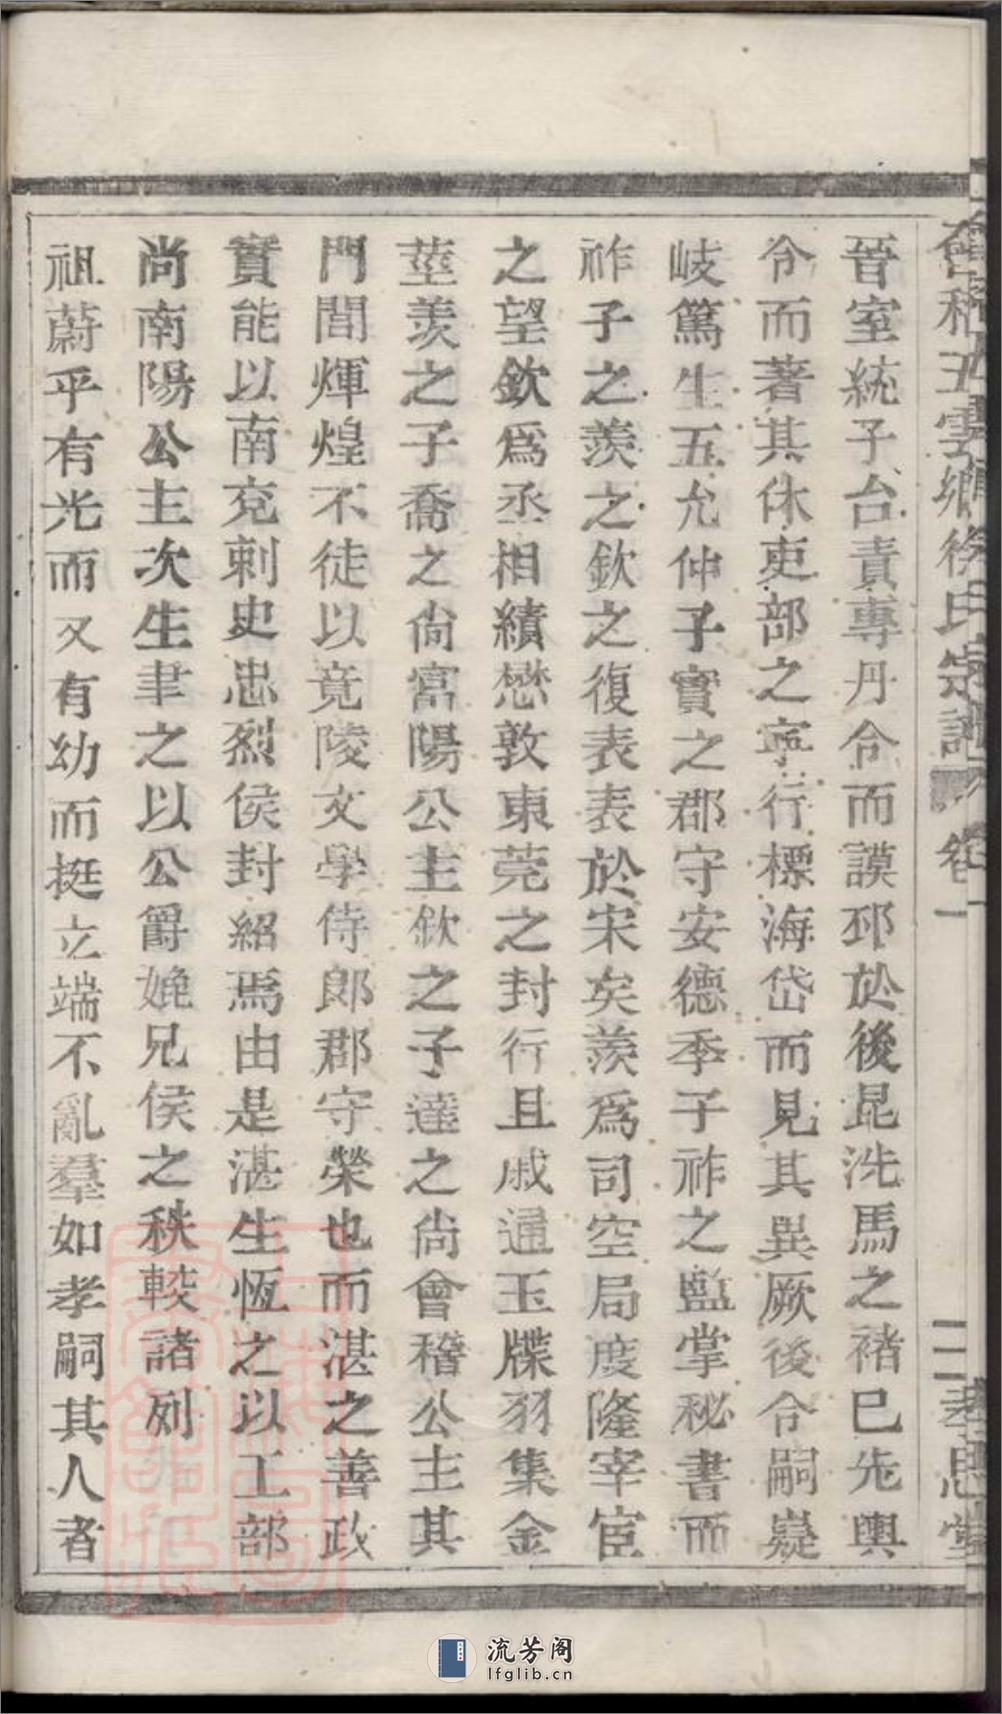 晉室統子台責專丹令而謨邳於後昆洗馬之褚巳先輿
令而著其休吏部之寧行標海岱而見其異厥後令嗣嶷
岐篤生五允仲子實之郡守安德季子祚之監掌秘書而
祚子之羨之欽之復表表於宋矣羨爲司空局度隆宰宦
之望欽爲丞相績懋敦東莞之封行且戚通玉牒羽集金
莖羨之子喬之尙富陽公主欽之子達之尙會稽公主其
門閭煇煌不徒以竟陵文學侍郎郡守榮也而湛之善政
實能以南兗刺史忠烈侯封紹焉由是湛生恆之以工部
尚南陽公主次生聿之以公爵娩兄侯之秩較諸列
祖蔚乎有光而又有幼而挺立端不亂羣如孝嗣其人者
會稽五雲鄉徐氏宗譜 卷一 二 孝思堂
流芳阁
lfglib.cn